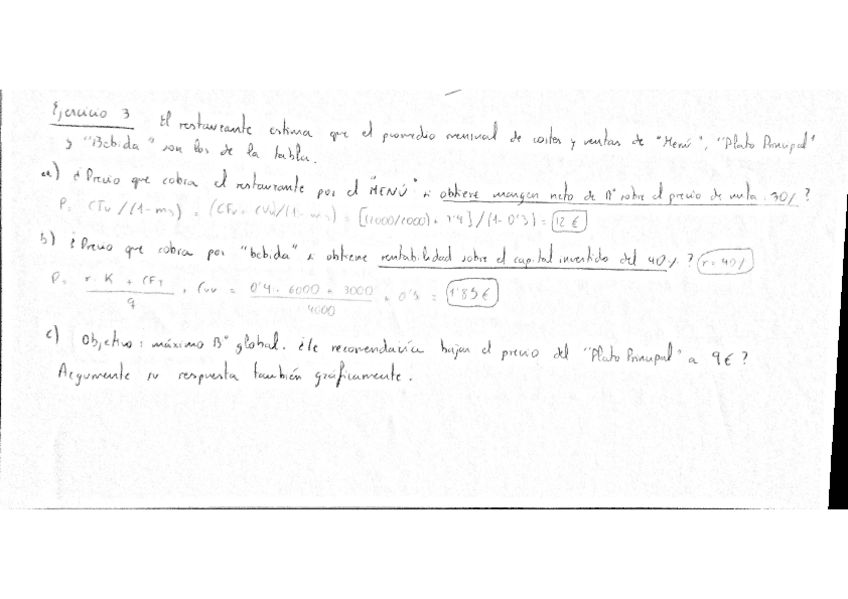 Ejercicio 3 El restaurante estima que el promedio mensual de costes y ventas de "Menú", "Plato Principal"
y "Bebida" son los de la tabla.
a) ¿Precio que cobra el restaurante por el "MENÚ" si obtiene margen neto de Bº sobre el precio de venta 30%?
P = CTu/(1-m) = (CFu + CVu)/(1-m) = [(11000/1000) + 1'4] / (1-0'3) = 12 €
b) ¿Precio que cobra por "bebida" si obtiene rentabilidad sobre el capital invertido del 40%? r = 40%
P = r · K + CFT / q + CVu = 0'4 · 6000 + 3000 / 4000 + 0'5 = 1'85 €
c) Objetivo: máximo Bº global. ¿Le recomendaría bajar el precio del "Plato Principal" a 9€?
Argumente su respuesta también gráficamente.